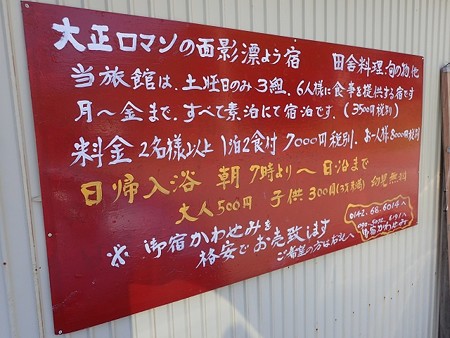 大正ロマンの面影漂よう宿 田舎料理、旬の物、他
当旅館は、土、日のみ3組、6人様に食事を提供する宿です
月〜金まで、すべて素泊にて宿泊です。(3500円税別)
料金 2名様以上 1泊2食付 7000円税別、お一人様8000円税別
日帰入浴 朝7時より〜日没まで
大人500円 子供300円 幼児無料
※御宿かわせみを
格安でお売致します
ご希望の方はお礼へ
0142.68.6014へ
御宿かわせみ